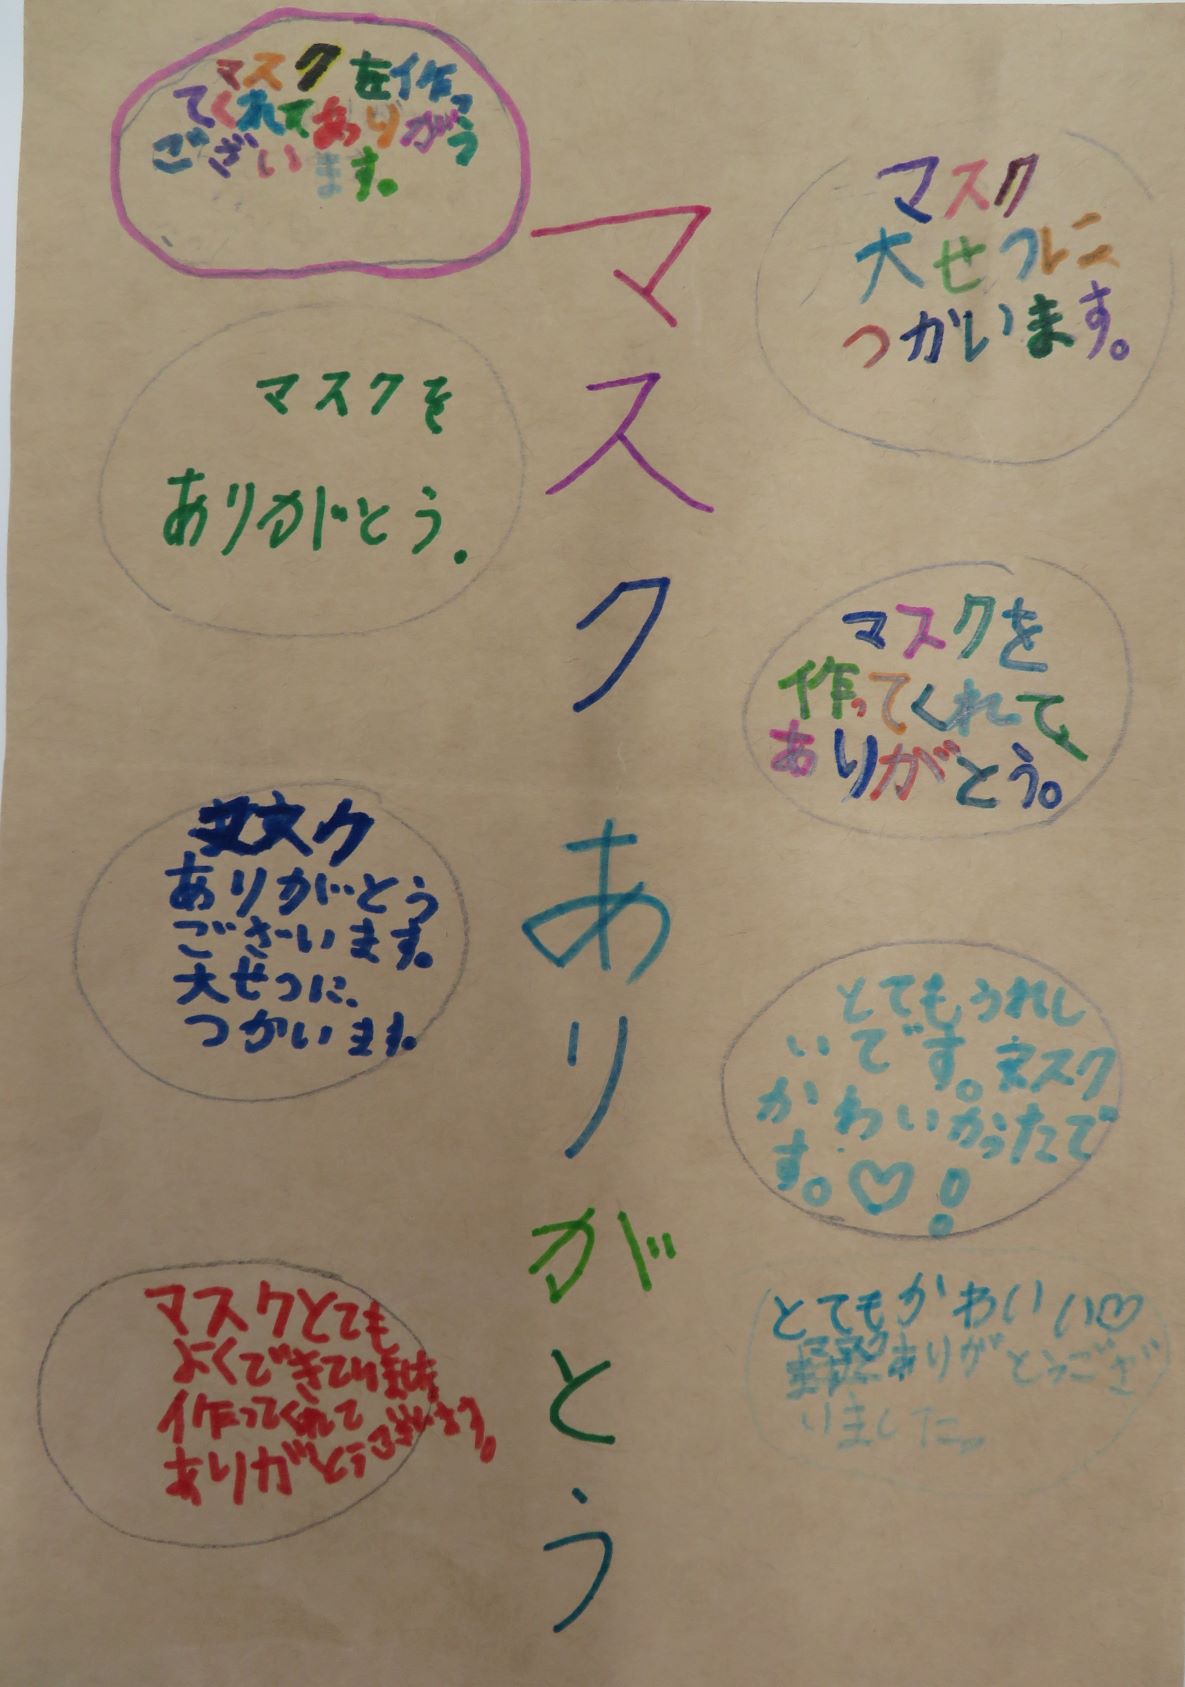 マスクありがとう
マスク
大せつに
つかいます。
マスクを
作ってくれて、
ありがとう。
とてもうれし
いです。マスク
かわいかったで
す。♡!
とてもかわいい♡
ありがとうござ
いました。
マスクを作っ
てくれてありがとう
ございます。
マスクを
ありがとう。
マスク
ありがとう
ございます。
大せつに、
つかいます。
マスクとても
よくできています
作ってくれて
ありがとうございます。